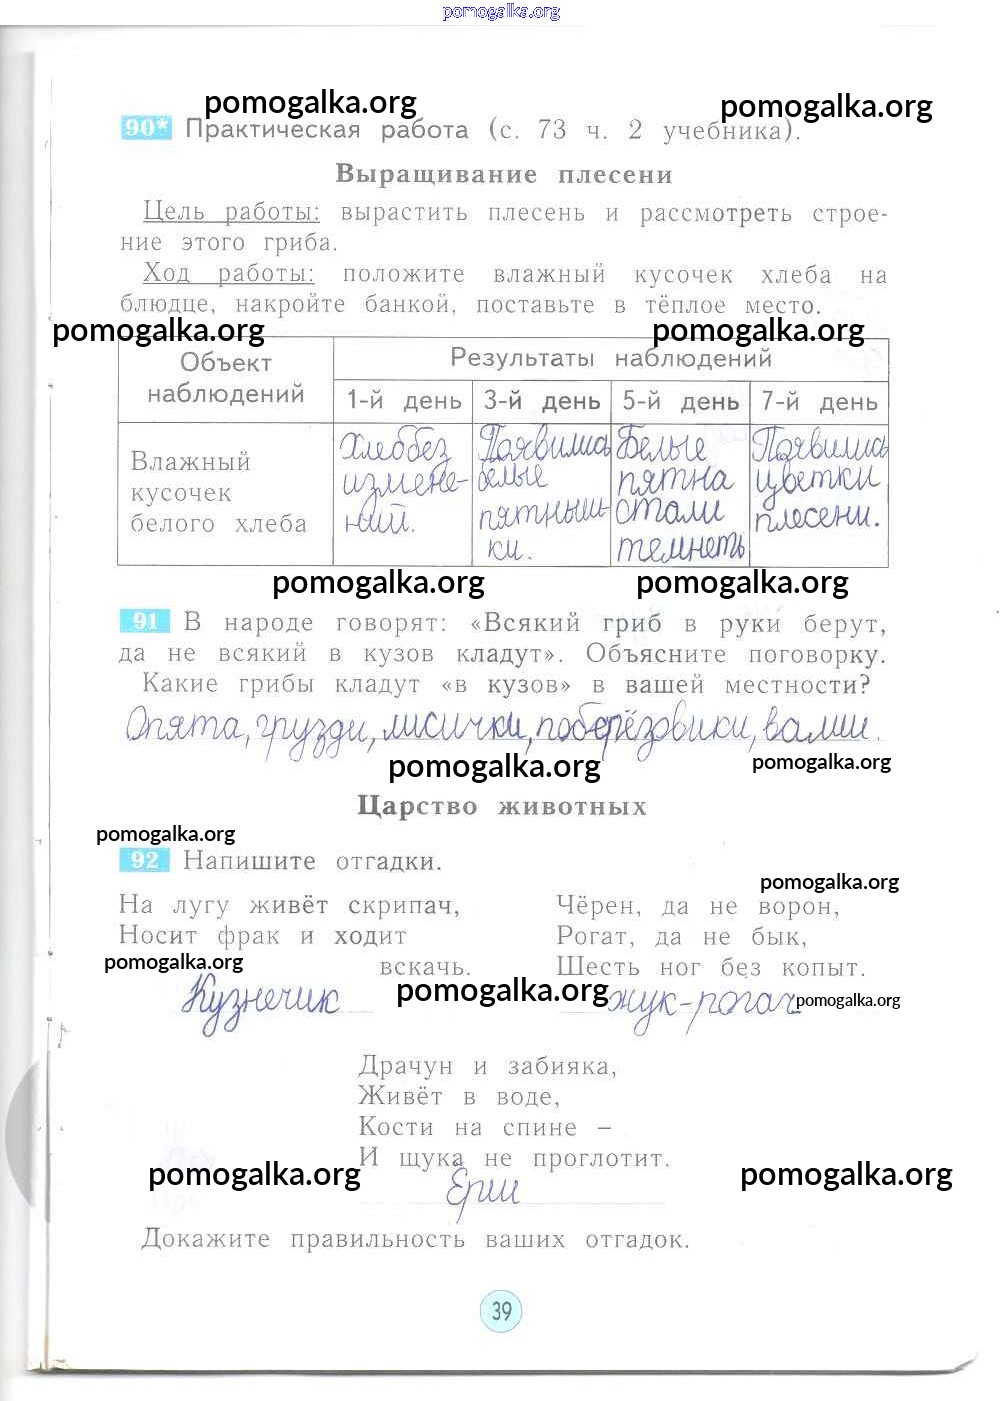 pomogalka.org
pomogalka.org pomogalka.org
90* Практическая работа (с. 73 ч. 2 учебника).
Выращивание плесени
Цель работы: вырастить плесень и рассмотреть строе-
ние этого гриба.
Ход работы: положите влажный кусочек хлеба на
блюдце, накройте банкой, поставьте в тёплое место.
pomogalka.org pomogalka.org
Объект наблюдений
Результаты наблюдений
1-й день 3-й день 5-й день 7-й день
Влажный
кусочек
белого хлеба
Хлеб без
измене-
ний.
Появились
белые
пятныш-
ки.
Белые
пятна
стали
темнеть
Появились
цветки
плесени.
pomogalka.org pomogalka.org
91 В народе говорят: «Всякий гриб в руки берут,
да не всякий в кузов кладут». Объясните поговорку.
Какие грибы кладут «в кузов» в вашей местности?
Опята, грузди, лисички, поберёзовики, валши.
pomogalka.org pomogalka.org
Царство животных
pomogalka.org
92 Напишите отгадки.
pomogalka.org
На лугу живёт скрипач,
Носит фрак и ходит
вскачь.
pomogalka.org
Кузнечик
Чёрен, да не ворон,
Рогат, да не бык,
Шесть ног без копыт.
pomogalka.org
жук-рогач
pomogalka.org
Драчун и забияка,
Живёт в воде,
Кости на спине –
И щука не проглотит.
pomogalka.org pomogalka.org
Ёрш
Докажите правильность ваших отгадок.
39